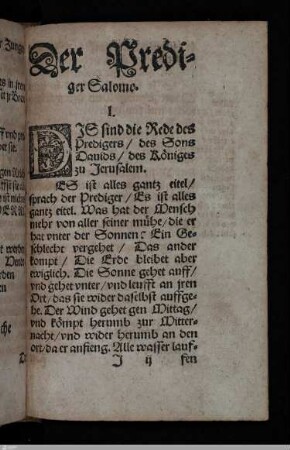 Der Predi-
ger Salomo.
I.
DIS sind die Rede des
Predigers/ des Sons
Dauids/ des Königes
zu Jerusalem.
ES ist alles gantz eitel/
sprach der Prediger/ Es ist alles
gantz eitel. Was hat der Mensch
mehr von aller seiner mühe/ die er
hat vnter der Sonnen? Ein Ge-
schlecht vergehet/ Das ander
kompt/ Die Erde bleibet aber
ewiglich. Die Sonne gehet auff/
vnd gehet vnter/ vnd leufft an jren
Ort/ das sie wider daselbst auffge-
he. Der Wind gehet gen Mittag/
vnd kömpt herumb zur Mitter-
nacht/ vnd wider herumb an den
ort/ da er anfieng. Alle wasser lauf-
J ij fen